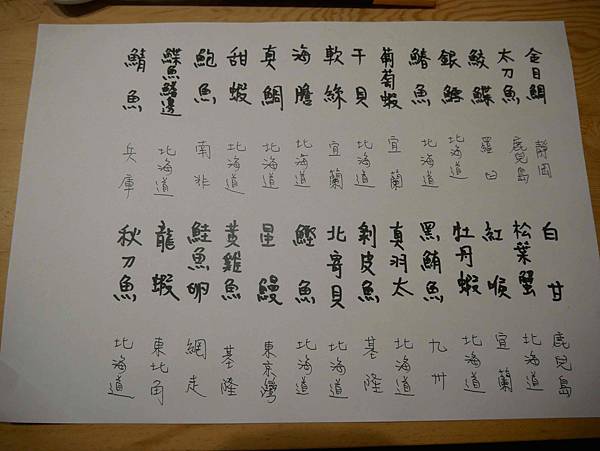 金目鯛 靜岡
太刀魚 鹿兒島
鮫鰈 羅臼
銀鱈 北海道
鰆魚 北海道
葡萄蝦 宜蘭
干貝 北海道
軟絲 宜蘭
海膽 北海道
真鯛 北海道
甜蝦 北海道
鮑魚 南非
鰈魚鰭邊 北海道
鯖魚 兵庫
白甘 鹿兒島
松葉蟹 北海道
紅喉 宜蘭
牡丹蝦 北海道
黑鮪魚 九州
真羽太 北海道
剝皮魚 基隆
北寄貝 北海道
鰹魚 北海道
星鰻 東京灣
黃雞魚 基隆
鮭魚卵 網走
龍蝦 東北角
秋刀魚 北海道